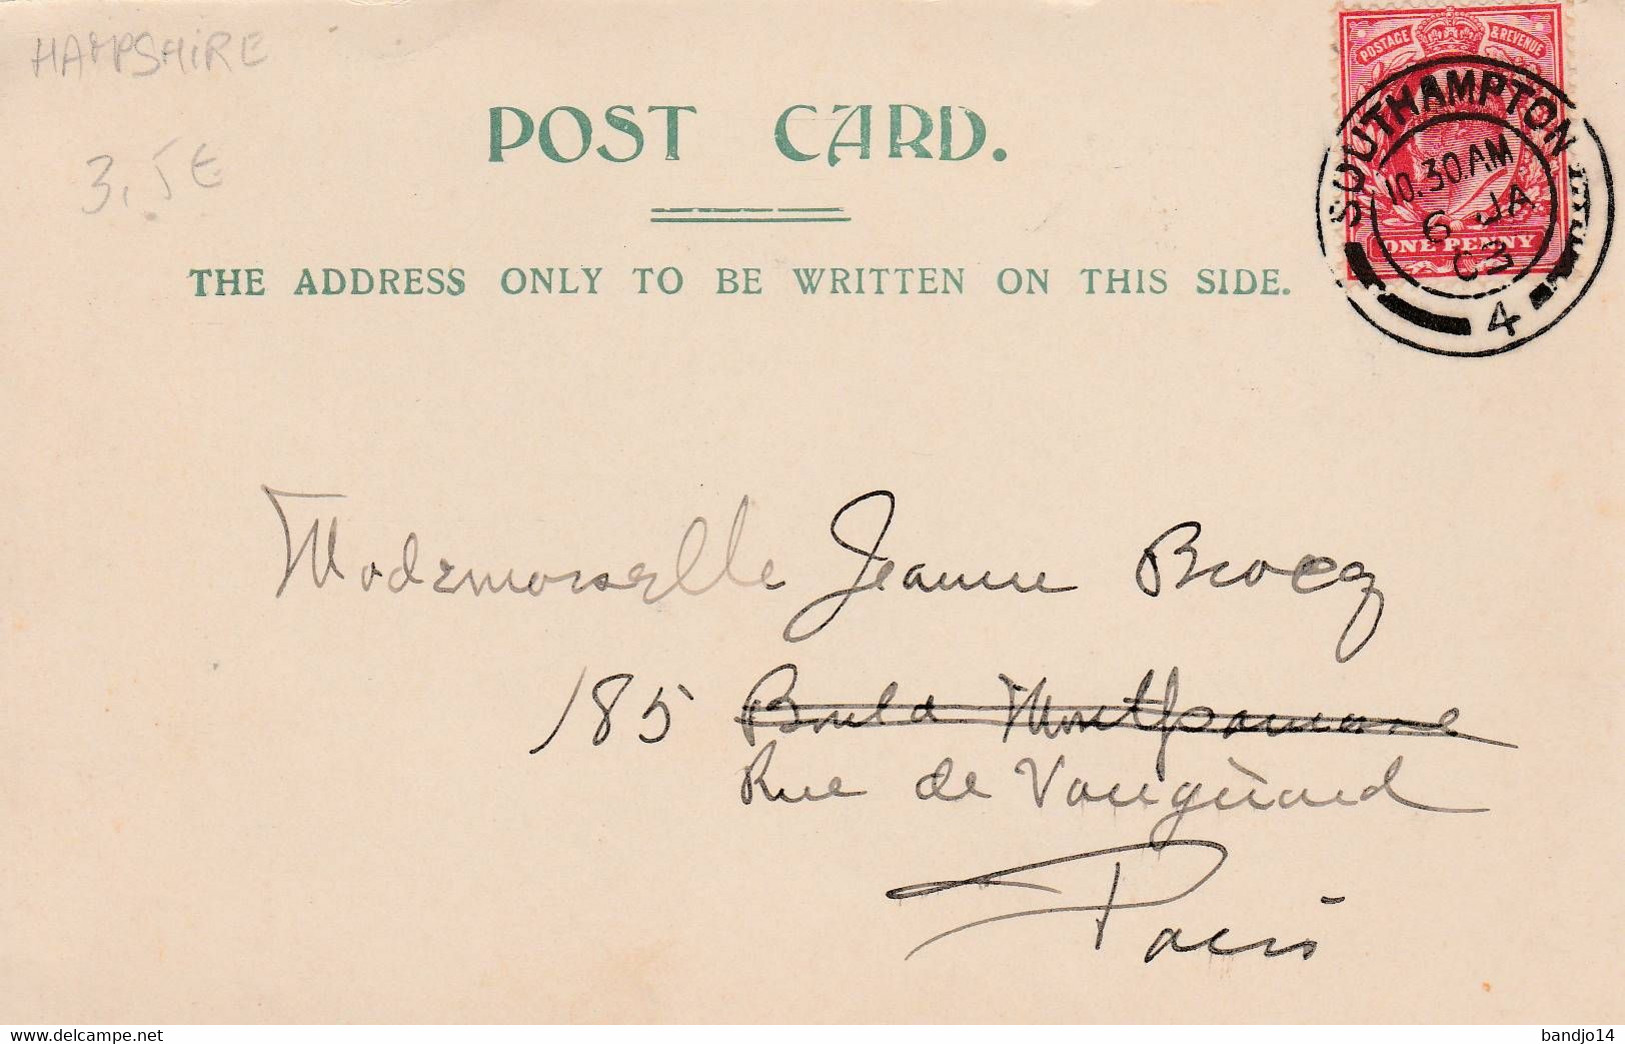 HAMPSHIRE
3,5 €
POST CARD.
THE ADDRESS ONLY TO BE WRITTEN ON THIS SIDE.
POSTAGE & REVENUE
ONE PENNY
SOUTHAMPTON
10.30 AM
6 JA
03
4
Mademoiselle Jeanne Brocq
185 Bould Montparnasse
Rue de Vaugirard
Paris
www.delcampe.net
bandjo14